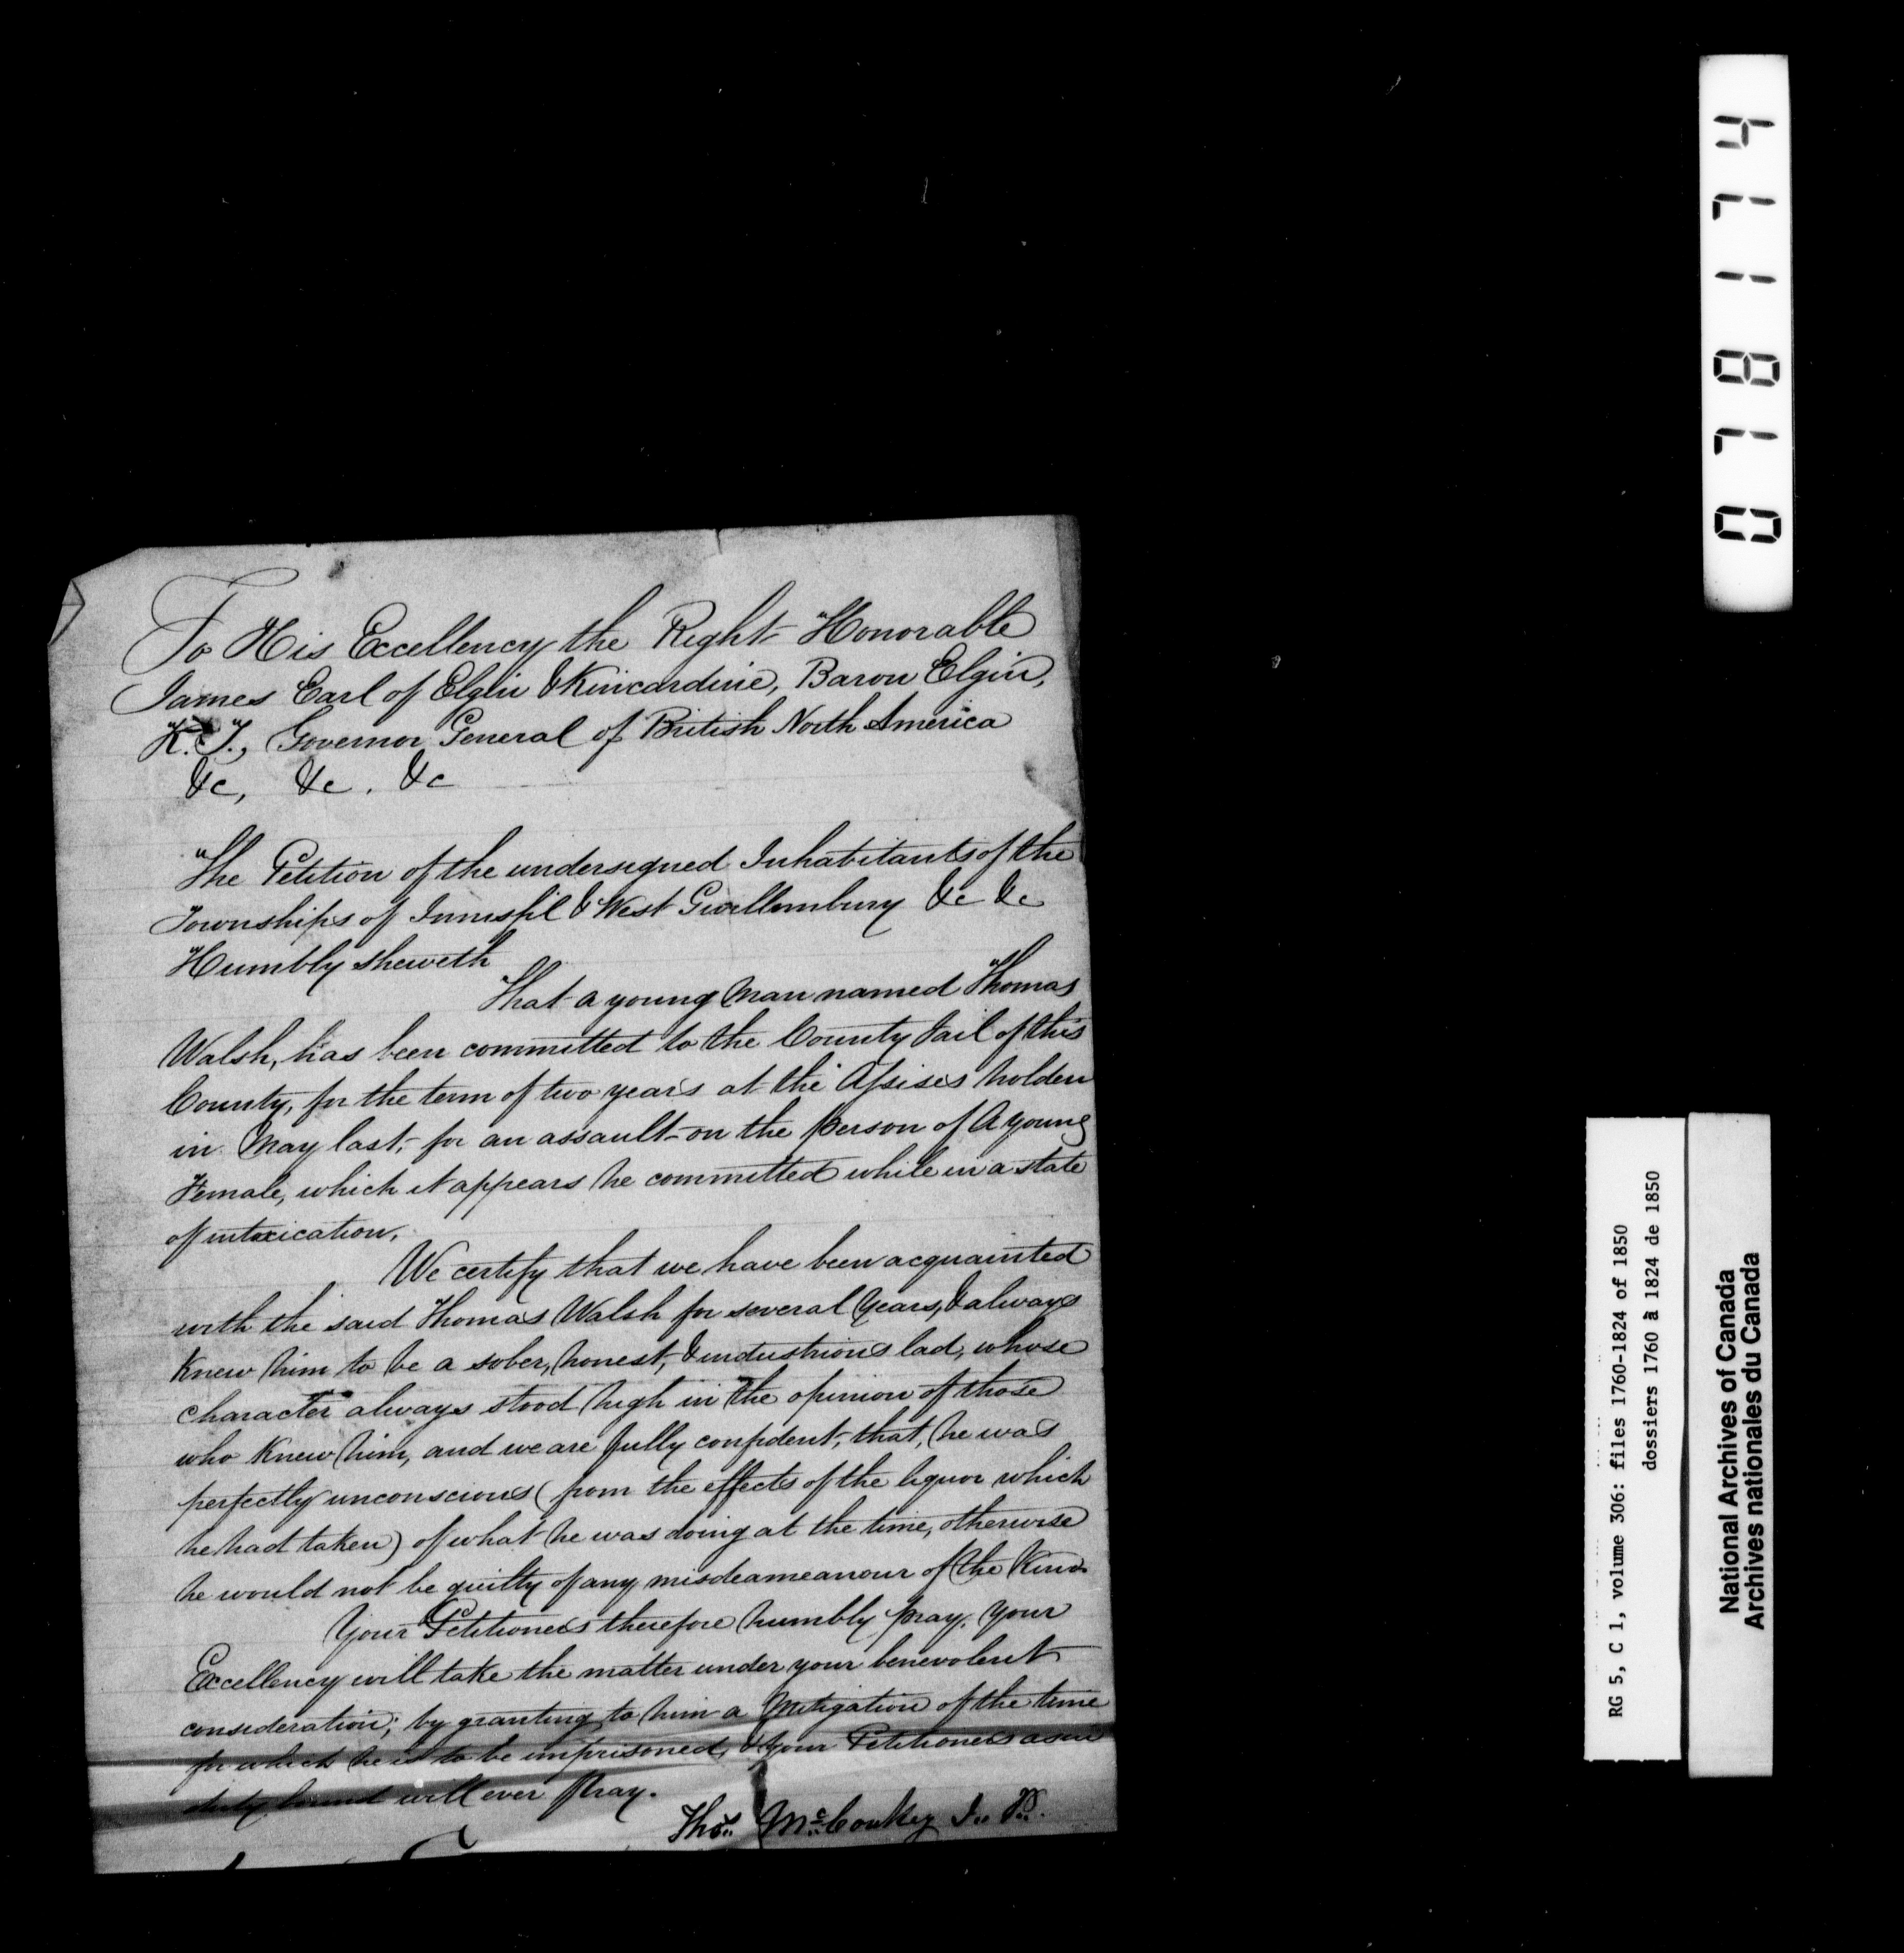 To His Excellency the Right Honorable
James Earl of Elgin & Kincardine, Baron Elgin,
K.T., Governor General of British North America
&c, &c. &c
The Petition of the undersigned Inhabitants of the
Townships of Innisfil & West Gwillembury &c &c
Humbly sheweth
That a young Man named Thomas
Walsh, has been committed to the County Jail of this
County, for the term of two years at the Assises holden
in May last, for an assault on the person of A young
Female, which it appears he committed while in a state
of intoxication.
We certify that we have been acquainted
with the said Thomas Walsh for several years, & always
Knew him to be a sober, honest, & industrious lad, whose
character always stood high in the opinion of those
who Knew him, and we are fully confident, that, he was
perfectly unconscious (from the effects of the liquor which
he had taken) of what he was doing at the time, otherwise
he would not be guilty of any misdeameanour of the Kind
Your Petitioners therefore humbly pray, your
Excellency will take the matter under your benevolent
consideration; by granting to him a Mitigation of the time
for which he is to be imprisoned, & your Petitioners as in
duty bound will ever Pray.
Thos. McConkey J. P.
071174
RG 5, C 1, volume 306: files 1760-1824 of 1850
dossiers 1760 à 1824 de 1850
National Archives of Canada
Archives nationales du Canada